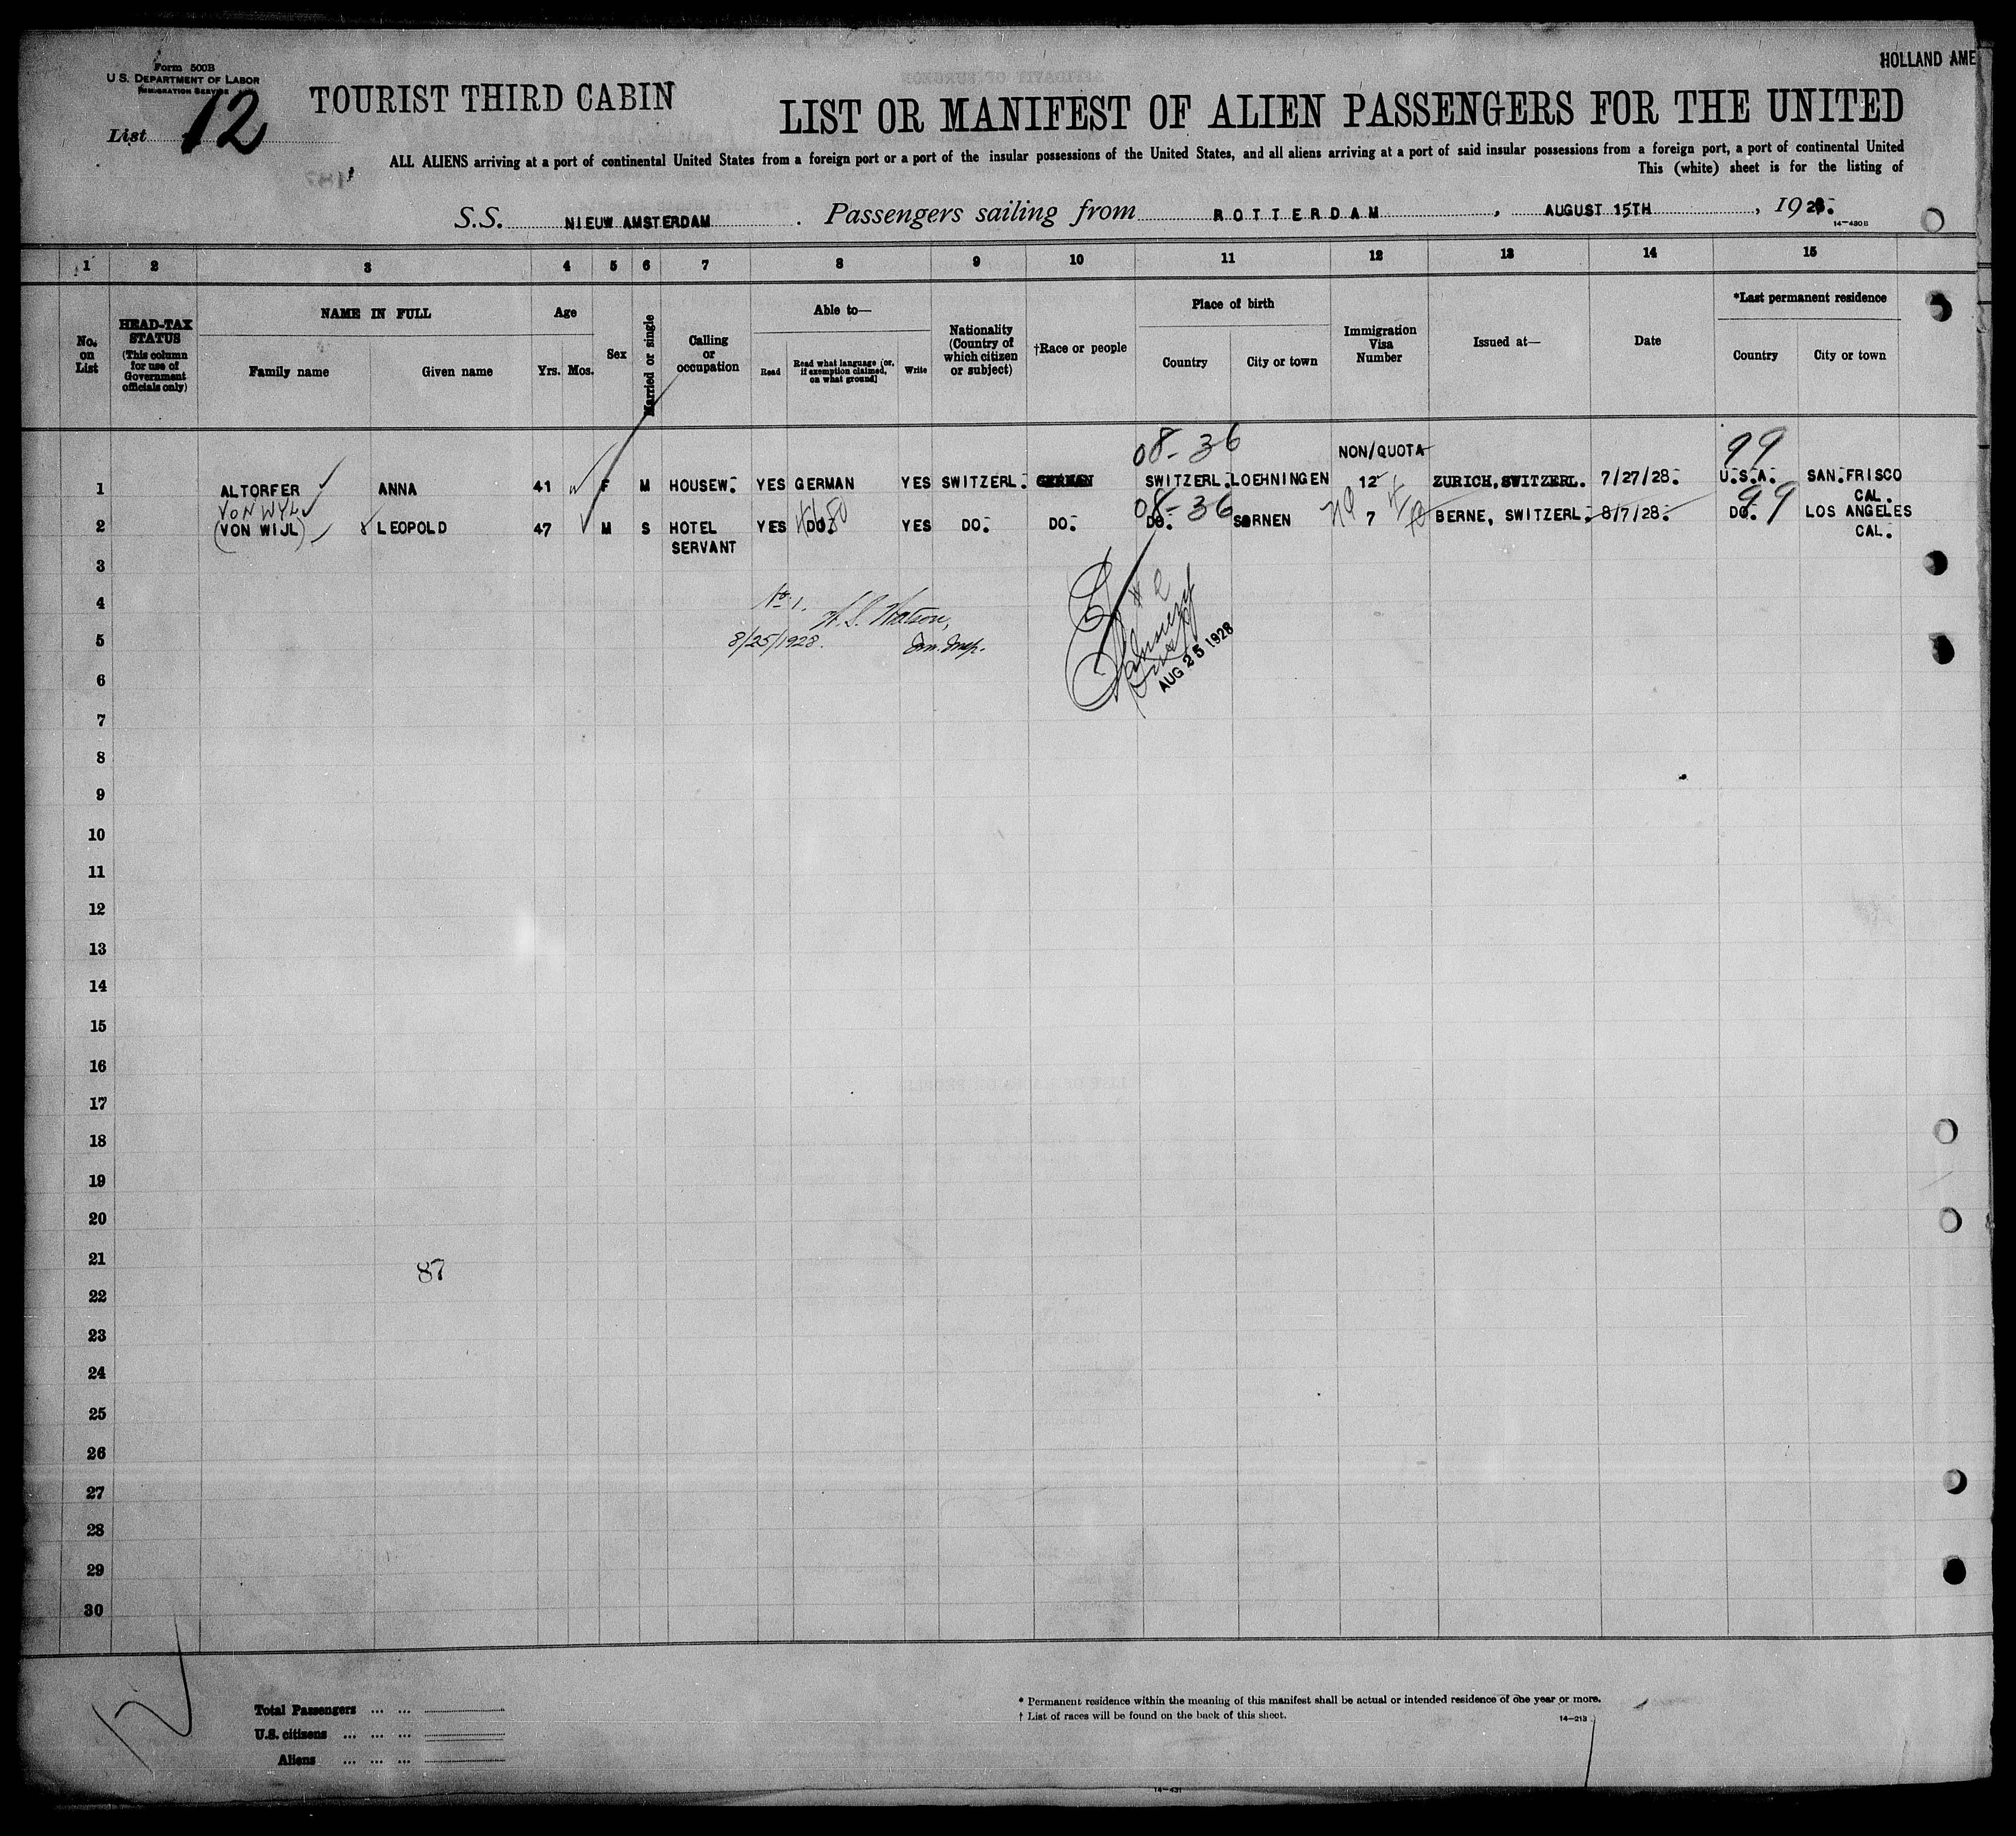 Form 500B
U S. DEPARTMENT OF LABOR
IMMIGRATION SERVICE
List 12
TOURIST THIRD CABIN
HOLLAND AME
LIST OR MANIFEST OF ALIEN PASSENGERS FOR THE UNITED
ALL ALIENS arriving at a port of continental United States from a foreign port or a port of the insular possessions of the United States, and all aliens arriving at a port of said insular possessions from a foreign port, a port of continental United
This (white) sheet is for the listing of
S.S. NIEUW AMSTERDAM. Passengers sailing from ROTTERDAM, AUGUST 15TH, 1928.
14-430B
1 2 3 4 5 6 7 8 9 10 11 12 13 14 15
No. on List
HEAD-TAX STATUS (This column for use of Government officials only)
NAME IN FULL
Family name Given name
Age
Yrs. Mos.
Sex
Married or single
Calling or occupation
Able to—
Read Read what language [or, if exemption claimed, on what ground] Write
Nationality (Country of which citizen or subject)
†Race or people
Place of birth
Country City or town
Immigration Visa Number
Issued at—
Date
*Last permanent residence
Country City or town
08-36 NON/QUOTA 99
1 ALTORFER ANNA 41 F M HOUSEW. YES GERMAN YES SWITZERL. GERMAN SWITZERL. LOEHNINGEN 12 ZURICH, SWITZERL. 7/27/28. U.S.A. SAN.FRISCO CAL.
VON WYL 08-36 99
2 (VON WIJL) LEOPOLD 47 M S HOTEL SERVANT YES DO. YES DO. DO. DO. SARNEN NQ 7 BERNE, SWITZERL. 8/7/28. DO. LOS ANGELES CAL.
3
4 No. 1. #2
8/25/1928. Imm. Insp.
5 AUG 25 1928
6
7
8
9
10
11
12
13
14
15
16
17
18
19
20
21
87
22
23
24
25
26
27
28
29
30
12
Total Passengers ... ...
U.S. citizens ... ... ...
Aliens ... ... ...
* Permanent residence within the meaning of this manifest shall be actual or intended residence of one year or more.
† List of races will be found on the back of this sheet.
14-213
14-431